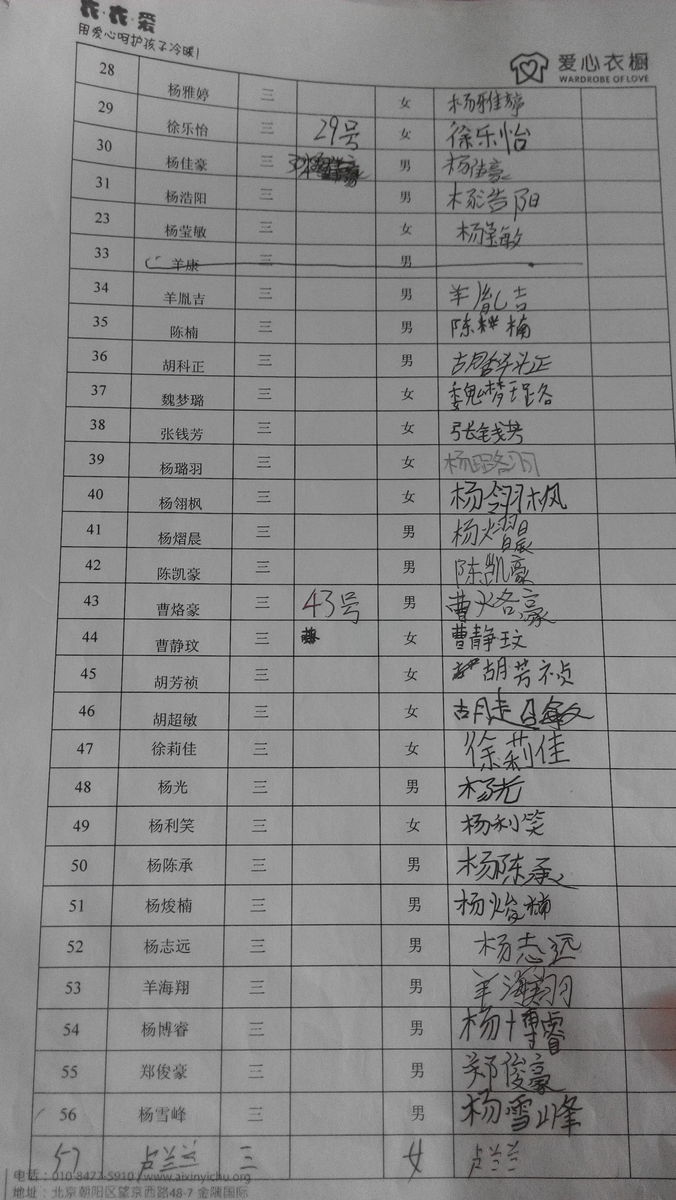 衣·衣·爱
用爱心呵护孩子冷暖!
爱心衣橱
WARDROBE OF LOVE
28 杨雅婷 三 女 杨雅婷
29 徐乐怡 三 29号 女 徐乐怡
30 杨佳豪 三 男 杨佳豪
31 杨浩阳 三 男 杨浩阳
23 杨莹敏 三 女 杨莹敏
33 羊康 三 男
34 羊胤吉 三 男 羊胤吉
35 陈楠 三 男 陈楠
36 胡科正 三 男 胡科正
37 魏梦璐 三 女 魏梦璐
38 张钱芳 三 女 张钱芳
39 杨璐羽 三 女 杨璐羽
40 杨翎枫 三 女 杨翎枫
41 杨熠晨 三 男 杨熠晨
42 陈凯豪 三 男 陈凯豪
43 曹烙豪 三 43号 男 曹烙豪
44 曹静玟 三 女 曹静玟
45 胡芳祯 三 女 胡芳祯
46 胡超敏 三 女 胡超敏
47 徐莉佳 三 女 徐莉佳
48 杨光 三 男 杨光
49 杨利笑 三 女 杨利笑
50 杨陈承 三 男 杨陈承
51 杨焌楠 三 男 杨焌楠
52 杨志远 三 男 杨志远
53 羊海翔 三 男 羊海翔
54 杨博睿 三 男 杨博睿
55 郑俊豪 三 男 郑俊豪
56 杨雪峰 三 男 杨雪峰
57 卢兰兰 三 女 卢兰兰
电话：010-8477-5910 / www.aixinyichu.org
地址：北京朝阳区望京西路48-7 金隅国际